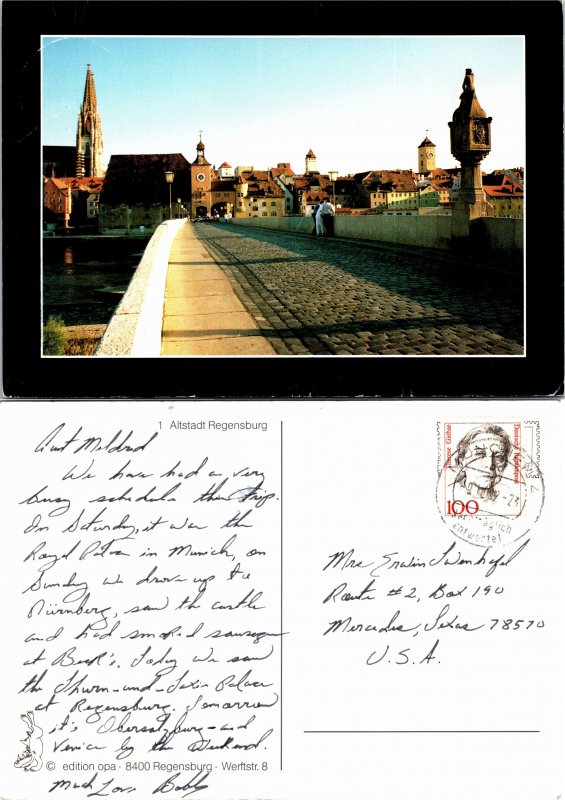 1 Altstadt Regensburg
Aunt Mildred
We have had a very
busy schedule this trip.
On Saturday, it was the
Royal Palace in Munich, on
Sunday we drove up to
Nürnberg, saw the castle
and had smoked sausage
at Beck's. Today we saw
the Thurn-and-Taxis Palace
at Regensburg. Tomorrow
it's Obersalzburg-and
Venice by the Weekend.
© edition opa · 8400 Regensburg · Werftstr. 8
Much Love Bobby
Deutsche Bundespost
100
entwertet
Mrs Erwin
Route #2, Box 190
Mercedes, Texas 78570
U.S.A.